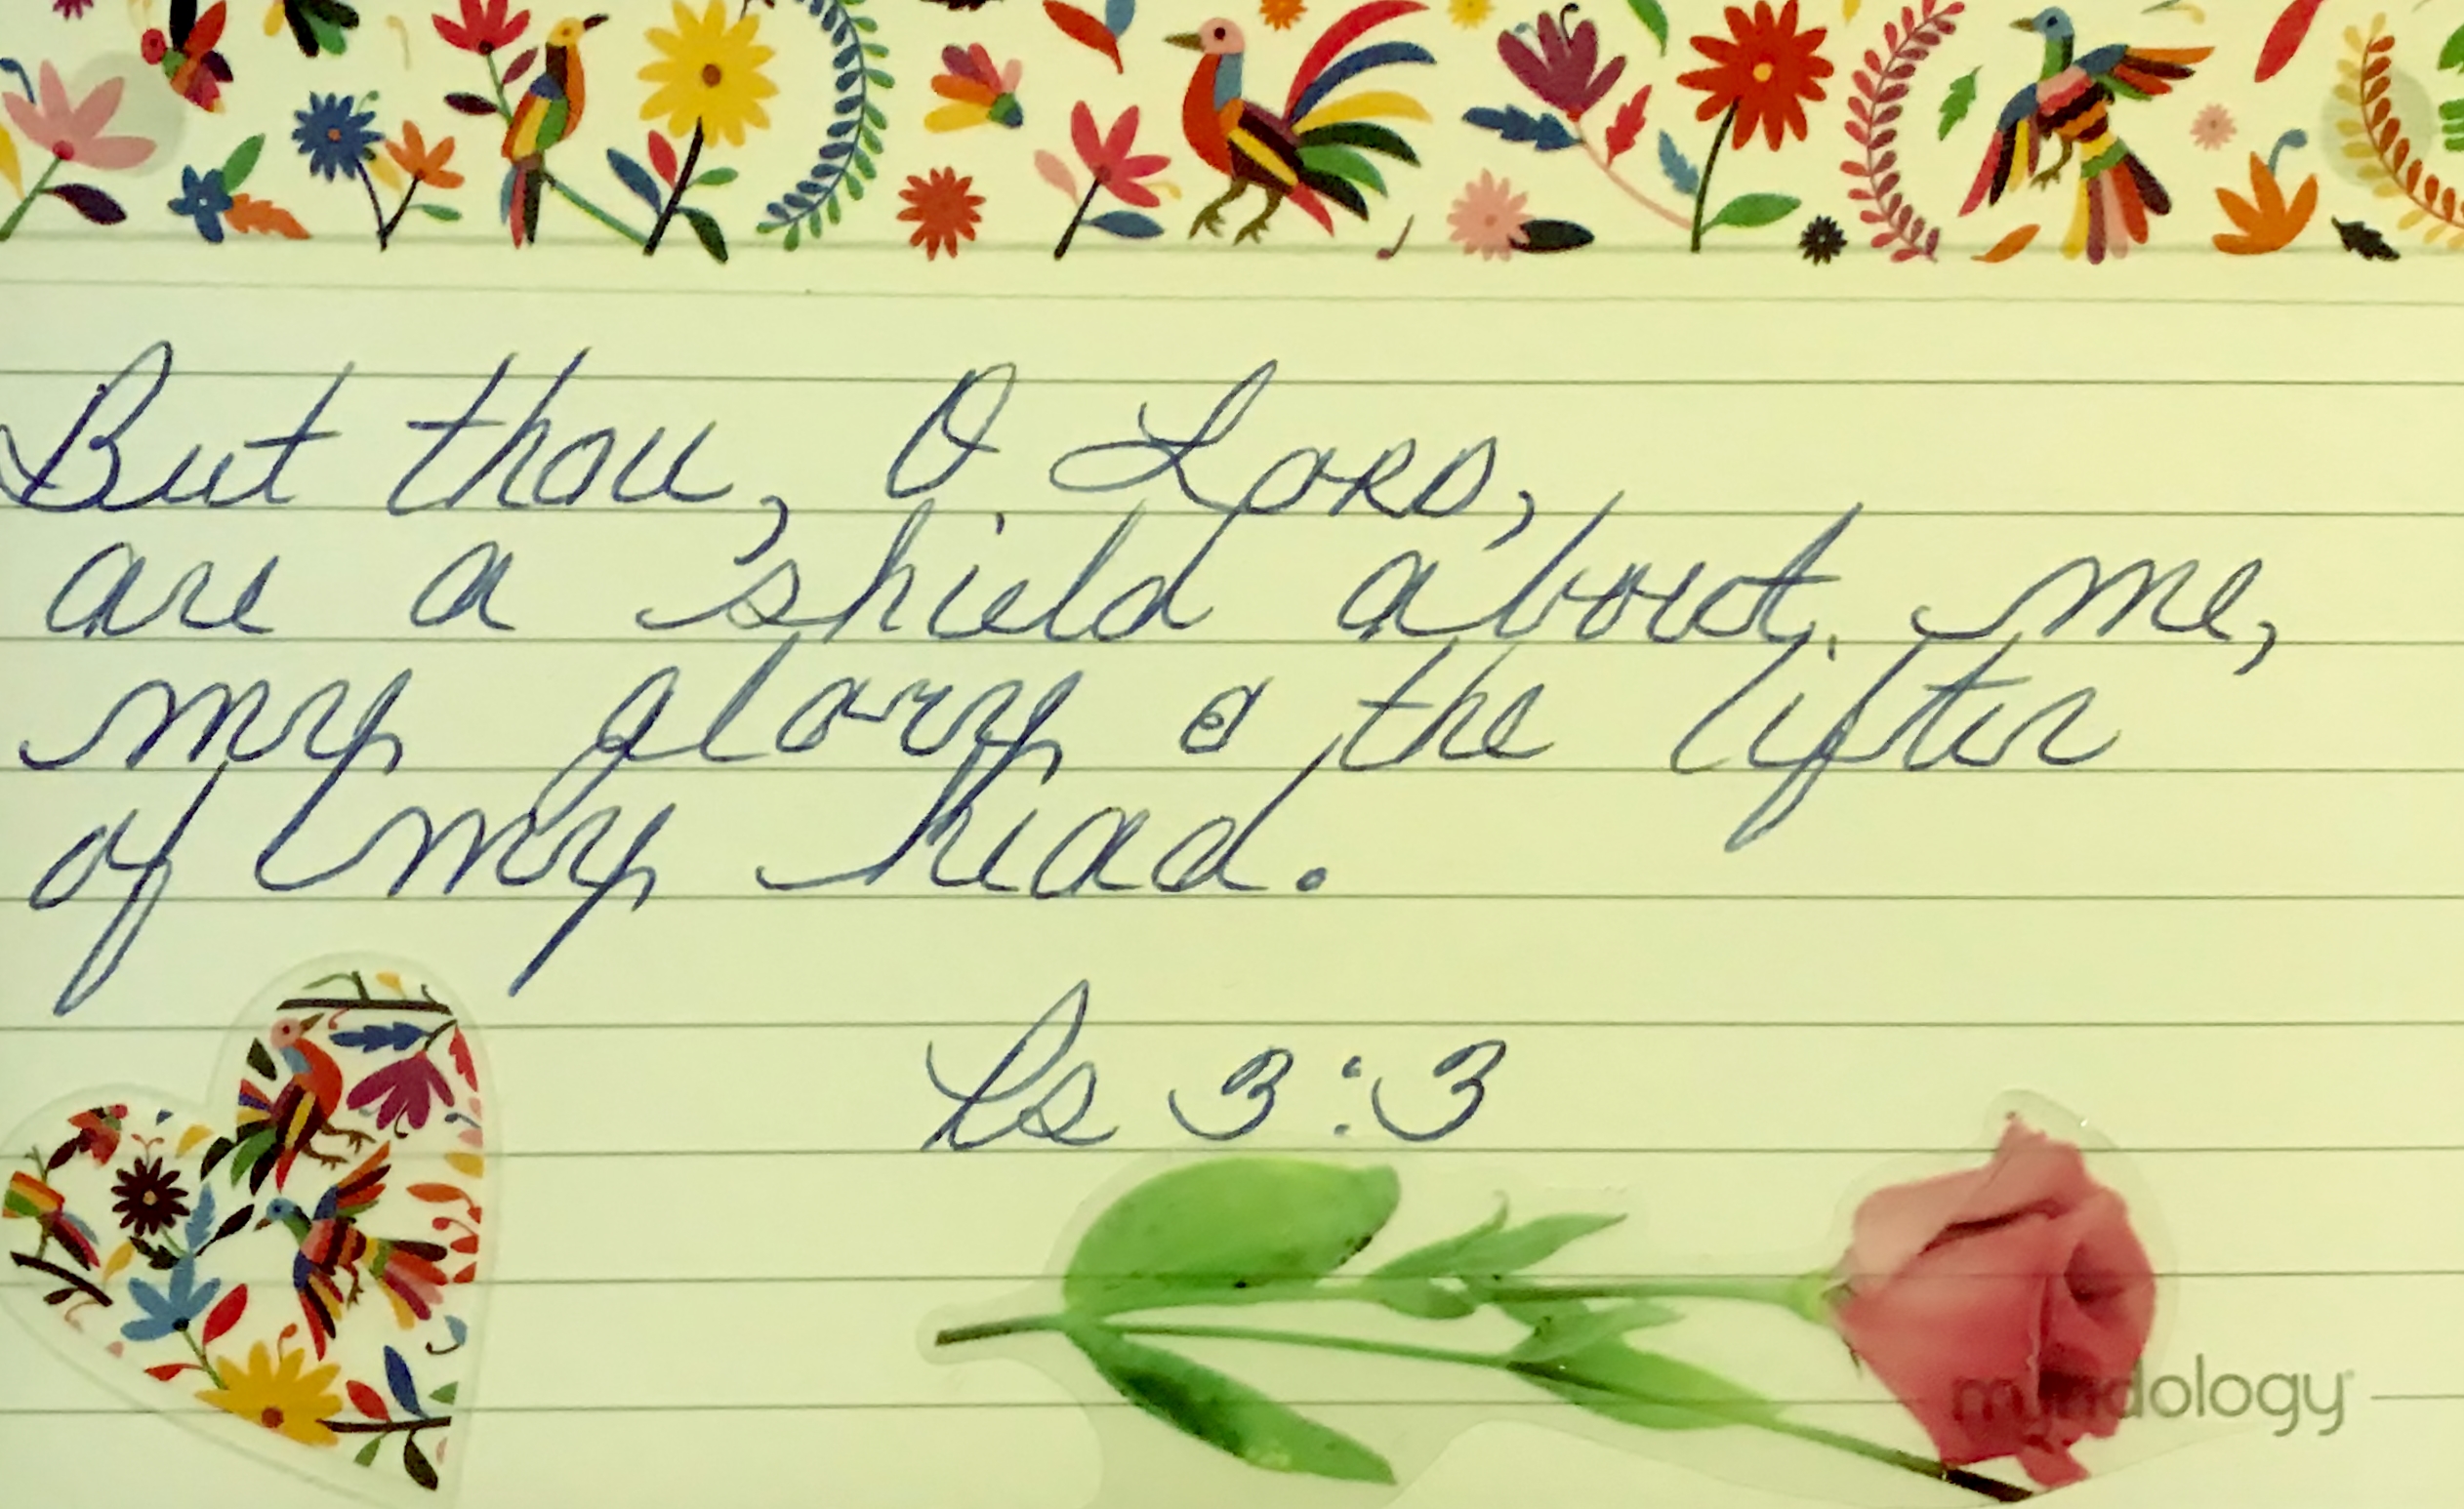 But thou, O LORD,
are a shield about me,
my glory & the lifter
of my head.
Ps 3:3
myndology